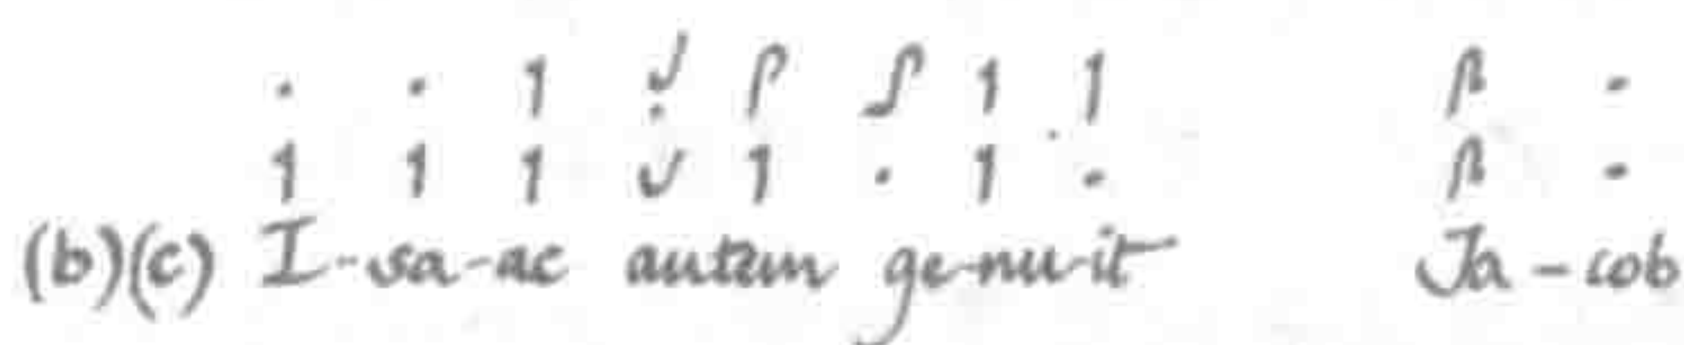 (b)(c) I-sa-ac autem ge-nu-it Ja-cob